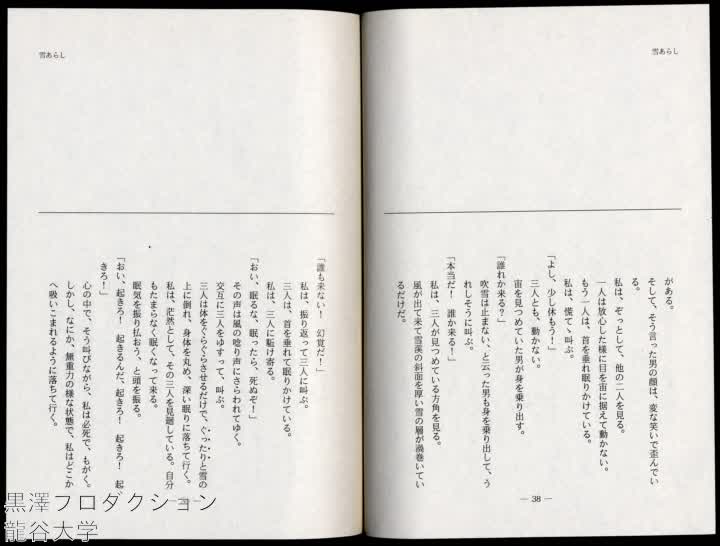 雪あらし
がある。
そして、そう言った男の顔は、変な笑いで歪んでい
る。
私は、ぞっとして、他の二人を見る。
一人は放心した様に目を宙に据えて動かない。
もう一人は、首を垂れ眠りかけている。
私は、慌てゝ叫ぶ。
「よし、少し休もう！」
三人とも、動かない。
宙を見つめていた男が身を乗り出す。
「誰れか来る？」
吹雪は止まない、と云った男も身を乗り出して、う
れしそうに叫ぶ。
「本当だ！　誰か来る！」
私は、三人が見つめている方角を見る。
風が出て来て雪渓の斜面を厚い雪の層が渦巻いてい
るだけだ。
― 38 ―
雪あらし
「誰も来ない！　幻覚だ！」
私は、振り返って三人に叫ぶ。
三人は、首を垂れて眠りかけている。
私は、三人に駈け寄る。
「おい、眠るな、眠ったら、死ぬぞ！」
その声は風の唸り声にさらわれてゆく。
交互に三人をゆすって、叫ぶ。
三人は体をぐらぐらさせるだけで、ぐったりと雪の
上に倒れ、身体を丸め、深い眠りに落ちて行く。
私は、茫然として、その三人を見廻している。自分
もたまらなく眠くなって来る。
眠気を振り払おう、と頭を振る。
「おい、起きろ！　起きるんだ、起きろ！　起きろ！　起
きろ！」
心の中で、そう叫びながら、私は必死で、もがく。
しかし、なにか、無重力の様な状態で、私はどこか
へ吸いこまれるように落ちて行く。
黒澤プロダクション
龍谷大学